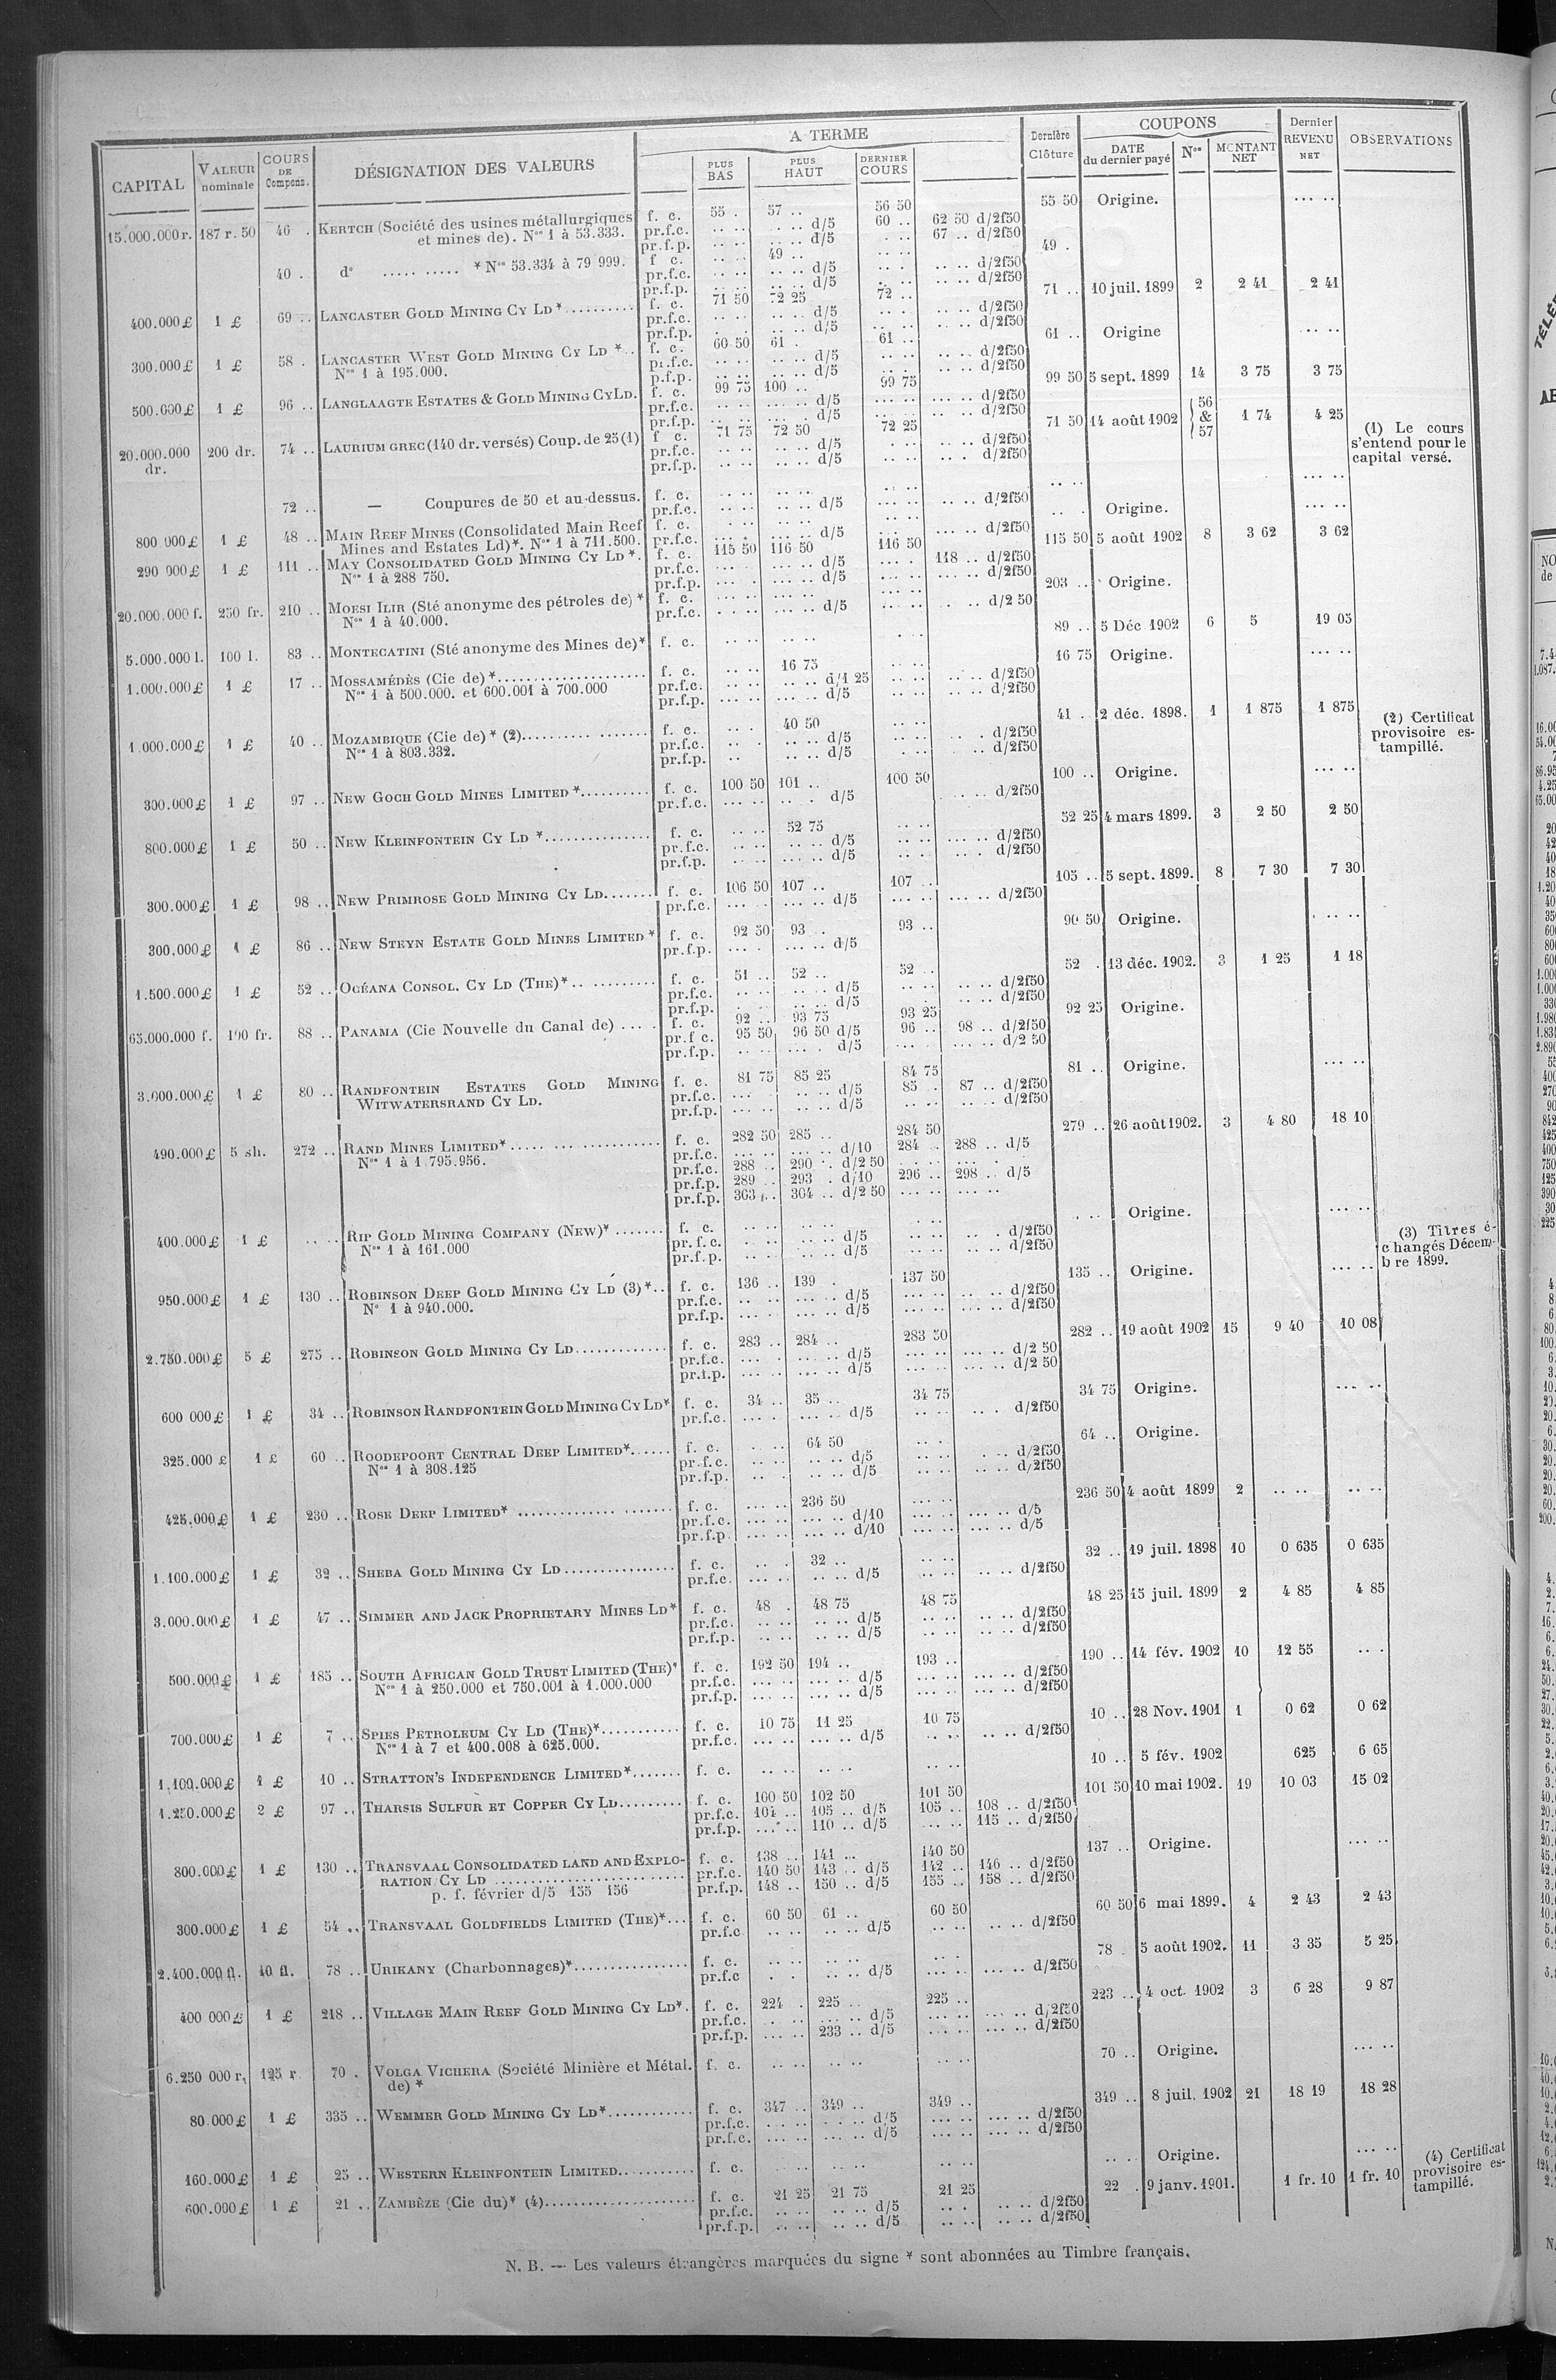 CAPITAL VALEUR nominale COURS DE Compens. DÉSIGNATION DES VALEURS A TERME PLUS BAS PLUS HAUT DERNIER COURS Dernière Clôture COUPONS DATE du dernier payé Nos MONTANT NET Dernier REVENU NET OBSERVATIONS
15.000.000 r. 187 r. 50 46 . KERTCH (Société des usines métallurgiques f. c. 55 . 57 .. 56 50 55 50 Origine. ... ..
et mines de). Nos 1 à 53.333. pr.f.c. .. .. .. .. d/5 60 .. 62 50 d/2f50
pr.f.p. .. .. .. .. d/5 . .. 67 .. d/2f50
40 .. do ..... ..... * Nos 53.334 à 79 999. f c. .. .. 49 .. 49 .
pr.f.c. .. .. .. .. d/5 .. . .. .. d/2f50
pr.f.p. .. .. .. .. d/5 .. .. d/2f50
400.000 £ 1 £ 69 .. LANCASTER GOLD MINING CY LD *.......... f. c. 71 50 72 25 72 .. 71 .. 10 juil. 1899 2 2 41 2 41
pr.f.c. .. .. .. .. d/5 .. .. .. .. d/2f50
pr.f.p. .. .. d/5 .. .. .. .. d/2f50
300.000 £ 1 £ 58 . LANCASTER WEST GOLD MINING CY LD *.. f. c. 60 50 61 . 61 .. 61 .. Origine ... ..
Nos 1 à 195.000. pr.f.c. .. .. .. .. d/5 .. .. .. .. d/2f50
p.f.p. .. .. .. .. d/5 .. .. .. .. d/2f50
500.000 £ 1 £ 96 .. LANGLAAGTE ESTATES & GOLD MINING CY LD. f. c. 99 75 100 .. 99 75 99 50 5 sept. 1899 14 3 75 3 75
pr.f.c. .. .. ... .. d/5 ... .. ... .. d/2f50
pr.f.p. .. .. .. . d/5 ... .. .. .. d/2f50
20.000.000 dr. 200 dr. 74 .. LAURIUM GREC (140 dr. versés) Coup. de 25 (1) f c. 71 75 72 50 72 25 71 50 14 août 1902 56 & 57 1 74 4 25 (1) Le cours s'entend pour le capital versé.
pr.f.c. .. .. .. .. d/5 . .. .. .. d/2f50
pr.f.p. .. .. .. .. d/5 .. .. .. . d/2f50
72 .. — Coupures de 50 et au-dessus. f. c. .. .. .. .. .. .. .. .. ... ..
pr.f.c. .. .. .. .. d/5 ... .. .. .. d/2f50
800 000 £ 1 £ 48 .. MAIN REEF MINES (Consolidated Main Reef f. c. . .. .. .. .. .. .. . Origine. ... ..
Mines and Estates Ld)*. Nos 1 à 711.500. pr.f.c. ... . ... .. d/5 ... .. ... .. d/2f50
290 000 £ 1 £ 111 .. MAY CONSOLIDATED GOLD MINING CY LD *. f. c. 115 50 116 50 116 50 115 50 5 août 1902 8 3 62 3 62
Nos 1 à 288 750. pr.f.c. ... .. ... .. d/5 ... . 118 .. d/2f50
pr.f.p. ... . ... .. d/5 ... .. ... .. d/2f50
20.000.000 f. 250 fr. 210 .. MOESI ILIR (Sté anonyme des pétroles de) * f. c. ... .. ... .. ... .. 203 .. Origine. ... ..
Nos 1 à 40.000. pr.f.c. . .. .. ... .. d/5 ... .. . .. d/2 50
5.000.000 l. 100 l. 83 .. MONTECATINI (Sté anonyme des Mines de)* f. c. .. .. .. .. . .. 89 .. 5 Déc 1902 6 5 19 05
1.000.000 £ 1 £ 17 .. MOSSAMÉDÈS (Cie de) *..................... f. c. .. .. 16 75 .. .. 16 75 Origine. ... ..
Nos 1 à 500.000. et 600.001 à 700.000 pr.f.c. .. .. .. .. d/1 25 .. .. .. .. d/2f50
pr.f.p. ... .. ... .. d/5 .. .. .. .. d/2f50
1.000.000 £ 1 £ 40 .. MOZAMBIQUE (Cie de) * (2)................. f. c. .. . 40 50 .. .. 41 . 2 déc. 1898. 1 1 875 1 875 (2) Certificat provisoire estampillé.
Nos 1 à 803.332. pr.f.c. .. . .. .. d/5 .. .. .. . d/2f50
pr.f.p. .. .. .. d/5 . .. .. .. d/2f50
300.000 £ 1 £ 97 .. NEW GOCH GOLD MINES LIMITED *.......... f. c. 100 50 101 .. 100 50 100 .. Origine. ... ..
pr.f.c. ... .. .. . d/5 .. .. d/2f50
800.000 £ 1 £ 50 .. NEW KLEINFONTEIN CY LD *............... f. c. .. .. 52 75 .. .. 52 25 4 mars 1899. 3 2 50 2 50
pr.f.c. .. .. ... .. d/5 .. .. ... .. d/2f50
pr.f.p. .. .. ... .. d/5 .. . .. . d/2f50
300.000 £ 1 £ 98 .. NEW PRIMROSE GOLD MINING CY LD....... f. c. 106 50 107 .. 107 .. 105 .. 5 sept. 1899. 8 7 30 7 30
pr.f.c. ... . ... .. d/5 ... .. ... .. d/2f50
300,000 £ 1 £ 86 .. NEW STEYN ESTATE GOLD MINES LIMITED * f. c. 92 50 93 . 93 .. 90 50 Origine. . .. ..
pr.f.p. ... . ... .. d/5
1.500.000 £ 1 £ 52 .. OCÉANA CONSOL. CY LD (THE) *.. .......... f. c. 51 .. 52 .. 52 .. 52 . 13 déc. 1902. 3 1 25 1 18
pr.f.c. .. .. .. .. d/5 .. .. .. .. d/2f50
pr.f.p. . .. .. d/5 . .. .. .. d/2f50
65.000.000 f. 100 fr. 88 .. PANAMA (Cie Nouvelle du Canal de) ... . f. c. 92 .. 93 75 93 25 92 25 Origine.
pr.f c. 95 50 96 50 d/5 96 .. 98 .. d/2f50
pr.f.p. .. .. ... . d/5 ... .. ... .. d/2 50
3.000.000 £ 1 £ 80 .. RANDFONTEIN ESTATES GOLD MINING f. c. 81 75 85 25 84 75 81 .. Origine. ... ..
WITWATERSRAND CY LD. pr.f.c. ... .. .. d/5 85 .. 87 .. d/2f50
pr.f.p. ... .. .. .. d/5 .. .. .. .. d/2f50
490.000 £ 5 sh. 272 .. RAND MINES LIMITED*..... ................. f. c. 282 50 285 .. 284 50 279 .. 26 août 1902. 3 4 80 18 10
Nos 1 à 1 795.956. pr.f.c. ... .. ... .. d/10 284 .. 288 .. d/5
pr.f.c. 288 .. 290 .. d/2 50 .. .. ... .
pr.f.p. 289 .. 293 . d/10 296 .. 298 .. d/5
pr.f.p. 303 .. 304 .. d/2 50 ... .. ... ..
400.000 £ 1 £ .. .. RIP GOLD MINING COMPANY (NEW)* ....... f. c. .. .. .. .. .. .. .. . Origine. ... ..
Nos 1 à 161.000 pr.f.c. .. .. .. .. d/5 .. .. .. . d/2f50
pr.f.p. .. .. .. .. d/5 .. .. .. .. d/2f50
(3) Titres échangés Décembre 1899.
950.000 £ 1 £ 130 .. ROBINSON DEEP GOLD MINING CY LD (3) *.. f. c. 136 .. 139 . 137 50 135 .. Origine. ... ..
No 1 à 940.000. pr.f.c. .. .. ... .. d/5 ... .. .. .. d/2f50
pr.f.p. ... .. ... .. d/5 ... .. ... .. d/2f50
2.750.000 £ 5 £ 275 .. ROBINSON GOLD MINING CY LD............. f. c. 283 .. 284 .. 283 50 282 .. 19 août 1902 15 9 40 10 08
pr.f.c. ... . ... .. d/5 ... .. ... .. d/2 50
pr.f.p. ... .. ... .. d/5 ... .. ... .. d/2 50
600 000 £ 1 £ 34 .. ROBINSON RANDFONTEIN GOLD MINING CY LD* f. c. 34 .. 35 .. 34 75 34 75 Origine. ... ..
pr.f.c. ... .. ... .. d/5 .. .. .. . d/2f50
325.000 £ 1 £ 60 .. ROODEPOORT CENTRAL DEEP LIMITED*...... f. c. .. .. 64 50 .. . 64 .. Origine.
Nos 1 à 308.125 pr.f.c. .. .. .. .. d/5 .. .. . .. d/2f50
pr.f.p. .. . .. .. d/5 .. .. .. .. d/2f50
425.000 £ 1 £ 230 .. ROSE DEEP LIMITED* .............. ....... f. c. ... .. 236 50 ... .. 236 50 4 août 1899 2 .. .. ... ..
pr.f.c. ... .. ... .. d/10 ... .. ... .. d/5
pr.f.p. ... .. ... .. d/10 ... .. ... .. d/5
1.100.000 £ 1 £ 32 .. SHEBA GOLD MINING CY LD................ f. c. .. . 32 .. .. .. 32 .. 19 juil. 1898 10 0 635 0 635
pr.f.c. ... .. .. .. d/5 .. .. .. .. d/2f50
3.000.000 £ 1 £ 47 .. SIMMER AND JACK PROPRIETARY MINES LD* f. c. 48 . 48 75 48 75 48 25 15 juil. 1899 2 4 85 4 85
pr.f.c. .. .. .. .. d/5 .. .. .. .. d/2f50
pr.f.p. .. .. .. .. d/5 .. .. .. .. d/2f50
500.000 £ 1 £ 185 .. SOUTH AFRICAN GOLD TRUST LIMITED (THE)* f. c. 192 50 194 .. 193 .. 190 .. 14 fév. 1902 10 12 55 .. .
Nos 1 à 250.000 et 750.001 à 1.000.000 pr.f.c. ... .. ... .. d/5 ... .. ... .. d/2f50
pr.f.p. ... .. ... .. d/5 ... .. ... .. d/2f50
700.000 £ 1 £ 7 .. SPIES PETROLEUM CY LD (THE)*........... f. c. 10 75 11 25 10 75 10 .. 28 Nov. 1901 1 0 62 0 62
Nos 1 à 7 et 400.008 à 625.000. pr.f.c. ... .. ... .. d/5 .. .. .. .. d/2f50
1,100.000 £ 1 £ 10 .. STRATTON'S INDEPENDENCE LIMITED*....... f. c. .. .. .. .. .. .. 10 .. 5 fév. 1902 625 6 65
1.250.000 £ 2 £ 97 .. THARSIS SULFUR ET COPPER CY LD......... f. c. 100 50 102 50 101 50 101 50 10 mai 1902. 19 10 03 15 02
pr.f.c. 104 .. 105 .. d/5 105 .. 108 .. d/2f50
pr.f.p. ... .. 110 .. d/5 ... .. 115 .. d/2f50
800.000 £ 1 £ 130 .. TRANSVAAL CONSOLIDATED LAND AND EXPLO- f. c. 138 .. 141 ... 140 50 137 .. Origine. ... ..
RATION CY LD .......................... pr.f.c. 140 50 143 .. d/5 142 .. 146 .. d/2f50
p. f. février d/5 155 156 pr.f.p. 148 .. 150 .. d/5 155 .. 158 .. d/2f50
300.000 £ 1 £ 54 .. TRANSVAAL GOLDFIELDS LIMITED (THE)*... f. c. 60 50 61 .. 60 50 60 50 6 mai 1899. 4 2 43 2 43
pr.f.c .. .. .. .. d/5 .. .. .. .. d/2f50
2.400.000 fl. 40 fl. 78 .. URIKANY (Charbonnages)*................ f. c. .. .. .. .. .. . 78 . 5 août 1902. 11 3 35 5 25
pr.f.c . . .. .. d/5 ... .. ... .. d/2f50
400 000 £ 1 £ 218 .. VILLAGE MAIN REEF GOLD MINING CY LD*. f. c. 224 . 225 .. 225 .. 223 .. 4 oct. 1902 3 6 28 9 87
pr.f.c. . .. ... .. d/5 ... .. ... .. d/2f50
pr.f.p. ... .. 233 .. d/5 ... .. ... .. d/2f50
6.250 000 r. 125 r. 70 . VOLGA VICHERA (Société Minière et Métal. f. c. .. .. .. .. .. .. 70 .. Origine. ... ..
de) *
80.000 £ 1 £ 335 .. WEMMER GOLD MINING CY LD*............ f. c. 347 .. 349 .. 349 .. 349 .. 8 juil. 1902 21 18 19 18 28
pr.f.c. ... .. ... .. d/5 ... .. ... .. d/2f50
pr.f.c. ... .. ... .. d/5 ... .. ... .. d/2f50
160.000 £ 1 £ 25 .. WESTERN KLEINFONTEIN LIMITED.......... f. c. .. .. .. .. .. .. Origine. ... ..
600.000 £ 1 £ 21 .. ZAMBÈZE (Cie du)* (4)..................... f. c. 21 25 21 75 21 25 22 . 9 janv. 1901. 1 fr. 10 1 fr. 10 (4) Certificat provisoire estampillé.
pr.f.c. .. .. .. .. d/5 .. . .. .. d/2f50
pr.f.p. .. .. .. .. d/5 .. .. .. .. d/2f50
N. B. — Les valeurs étrangères marquées du signe * sont abonnées au Timbre français.